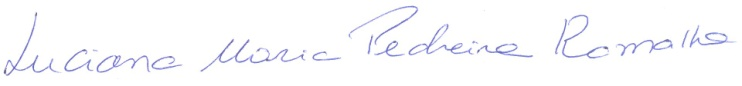 Luciana Maria Pedreira Ramalho